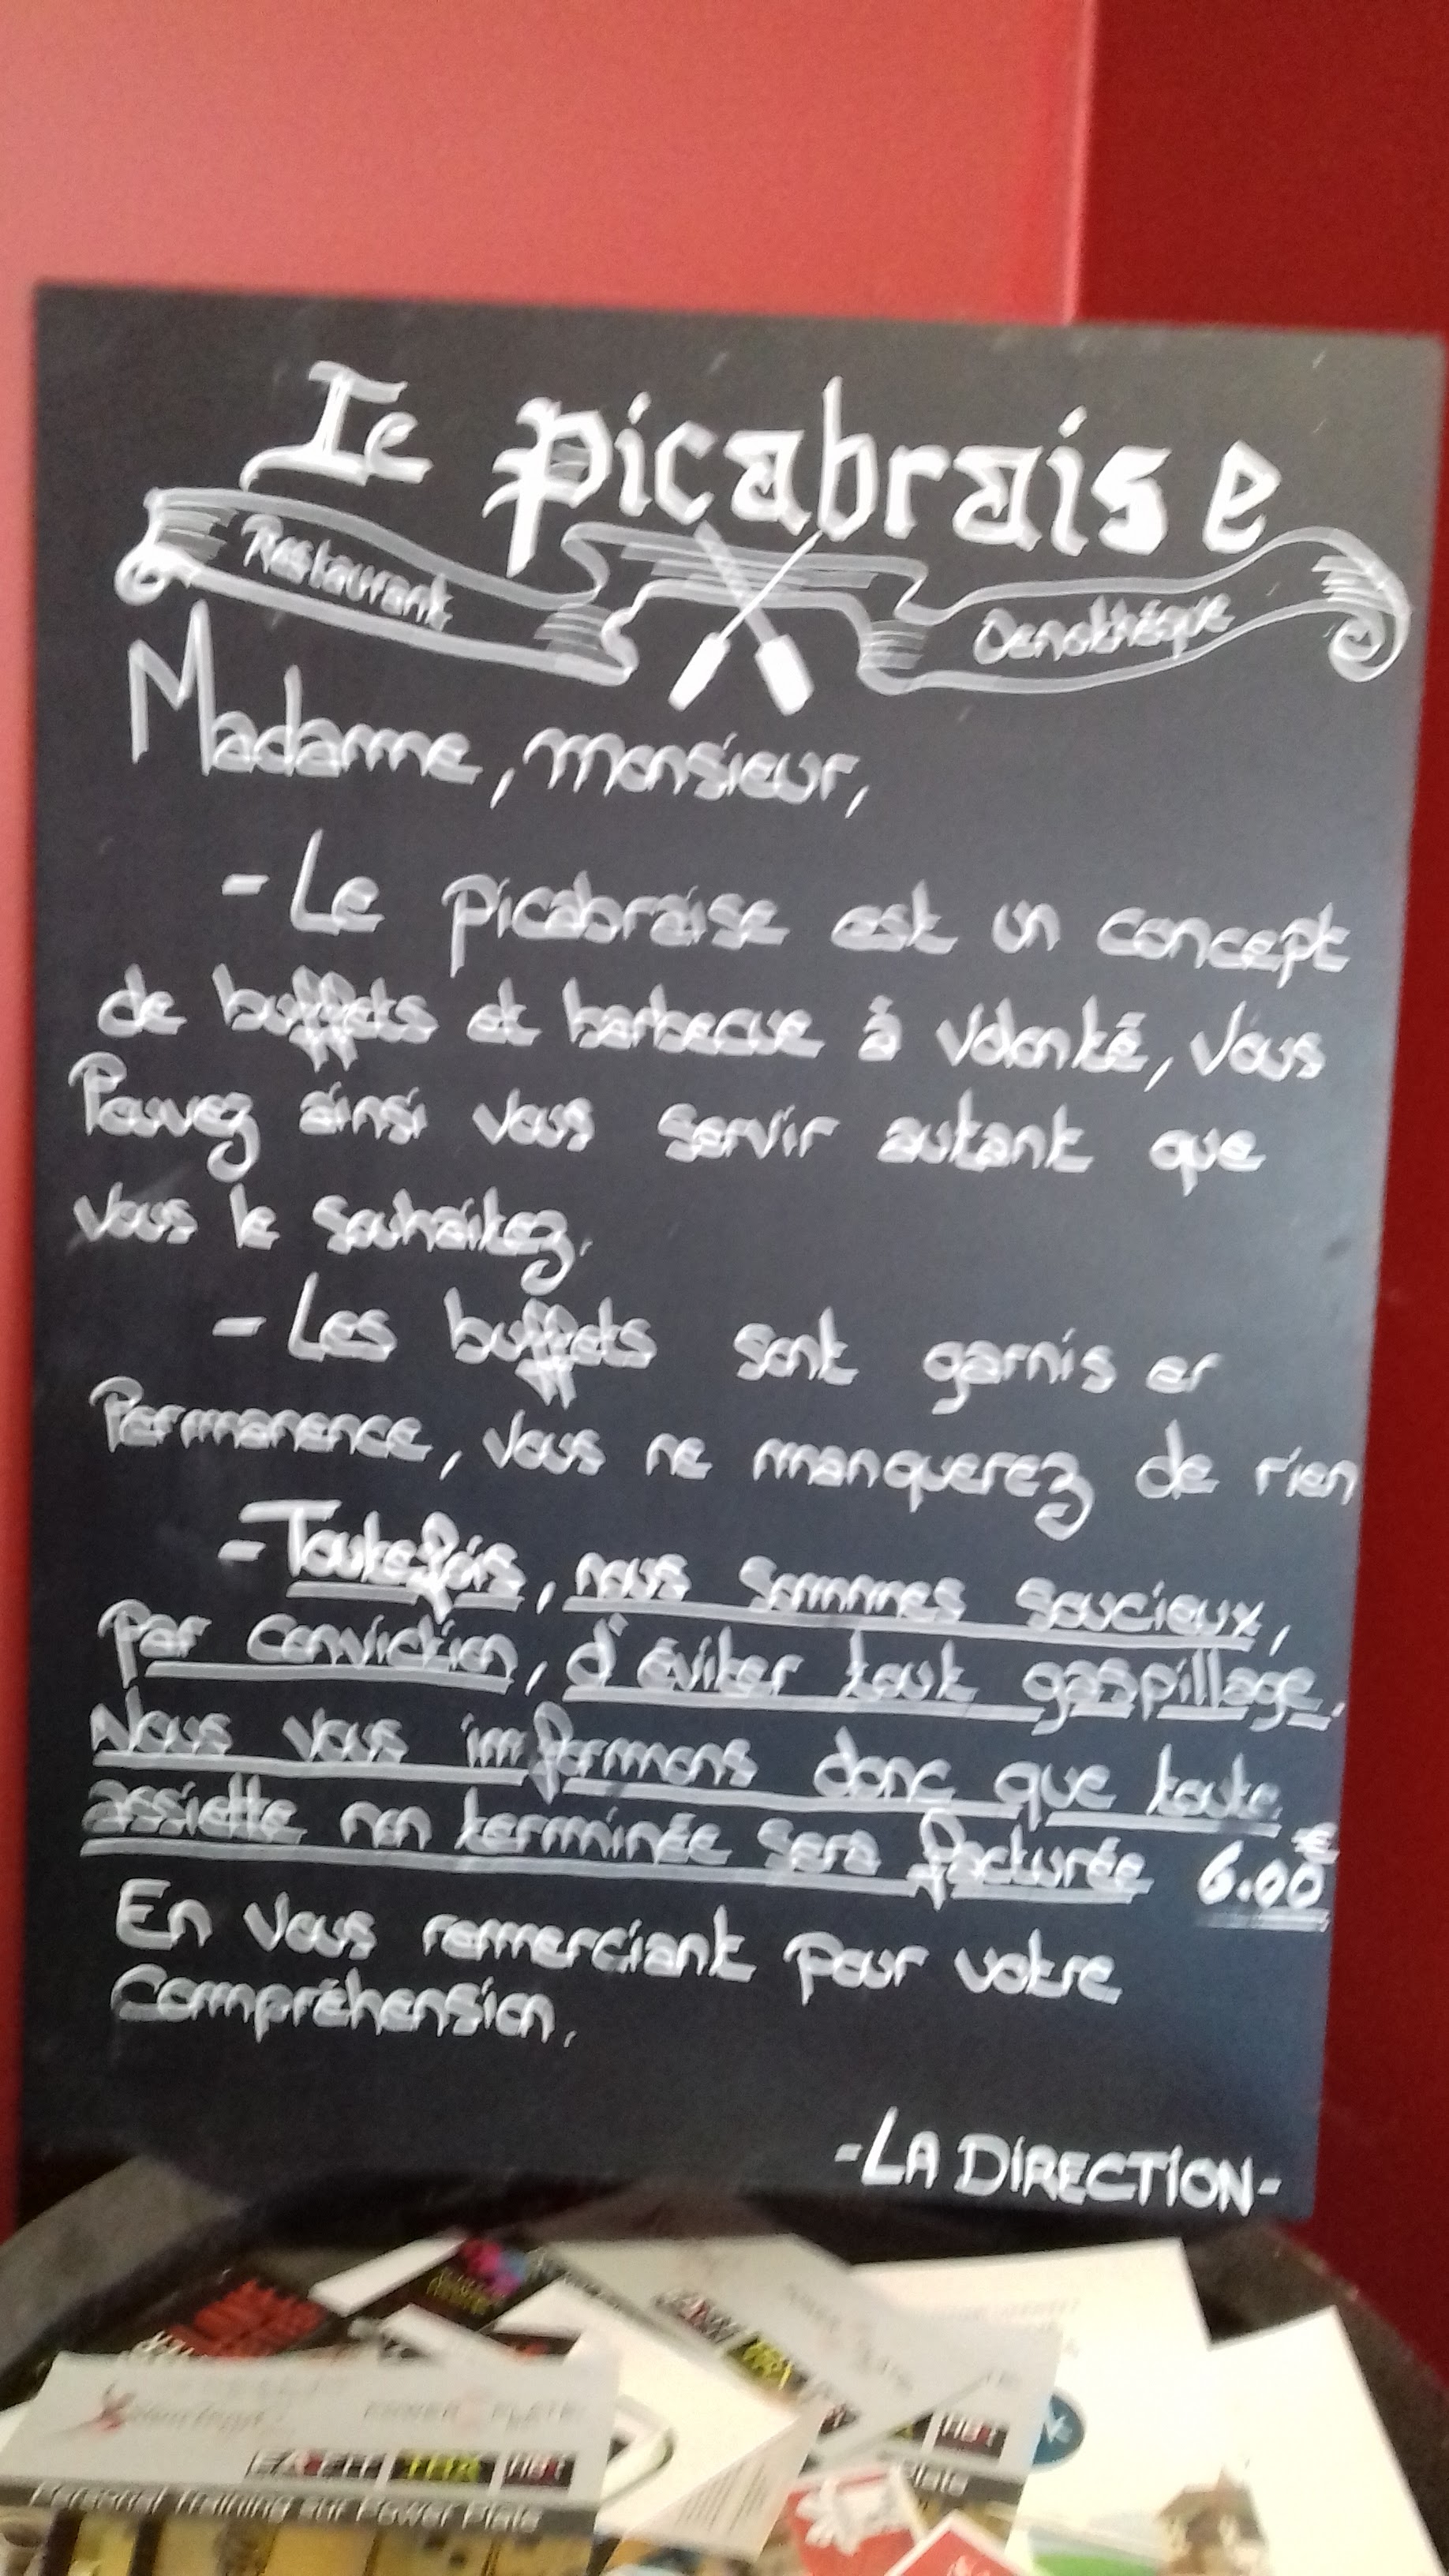 Le Picabraise
Restaurant Oenothèque
Madame, monsieur,
- Le picabraise est un concept
de buffets et barbecue à volonté, Vous
Pouvez ainsi vous servir autant que
vous le souhaitez.
- Les buffets sont garnis en
Permanence, vous ne manquerez de rien
- Toutefois, nous sommes soucieux,
par conviction, d'éviter tout gaspillage.
Nous vous informons donc que toute
assiette non terminée sera facturée 6.00€
En vous remerciant pour votre
Compréhension.
- LA DIRECTION -
POWER PLATE
HBT
HBT
Plate
Personal Training sur Power Plate